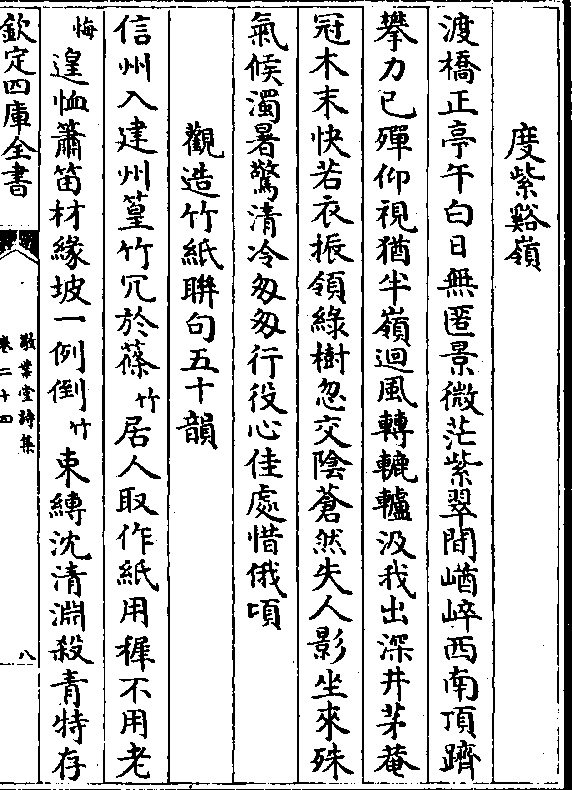 度紫谿嶺
渡橋正亭午白日無匿景微茫紫翠間崷崪西南頂躋
攀力已殫仰視猶半嶺迴風轉轆轤汲我出深井茅菴
冠木末快若衣振領綠樹忽交陰蒼然失人影坐來殊
氣候濁暑驚清冷匆匆行役心佳處惜俄頃
觀造竹紙聯句五十韻
信州入建州篁竹冗於篠竹居人取作紙用穉不用老
悔遑恤簫笛材緣坡一例倒竹束縛沈清淵殺青特存
欽定四庫全書
敬業堂詩集
卷二十四
八